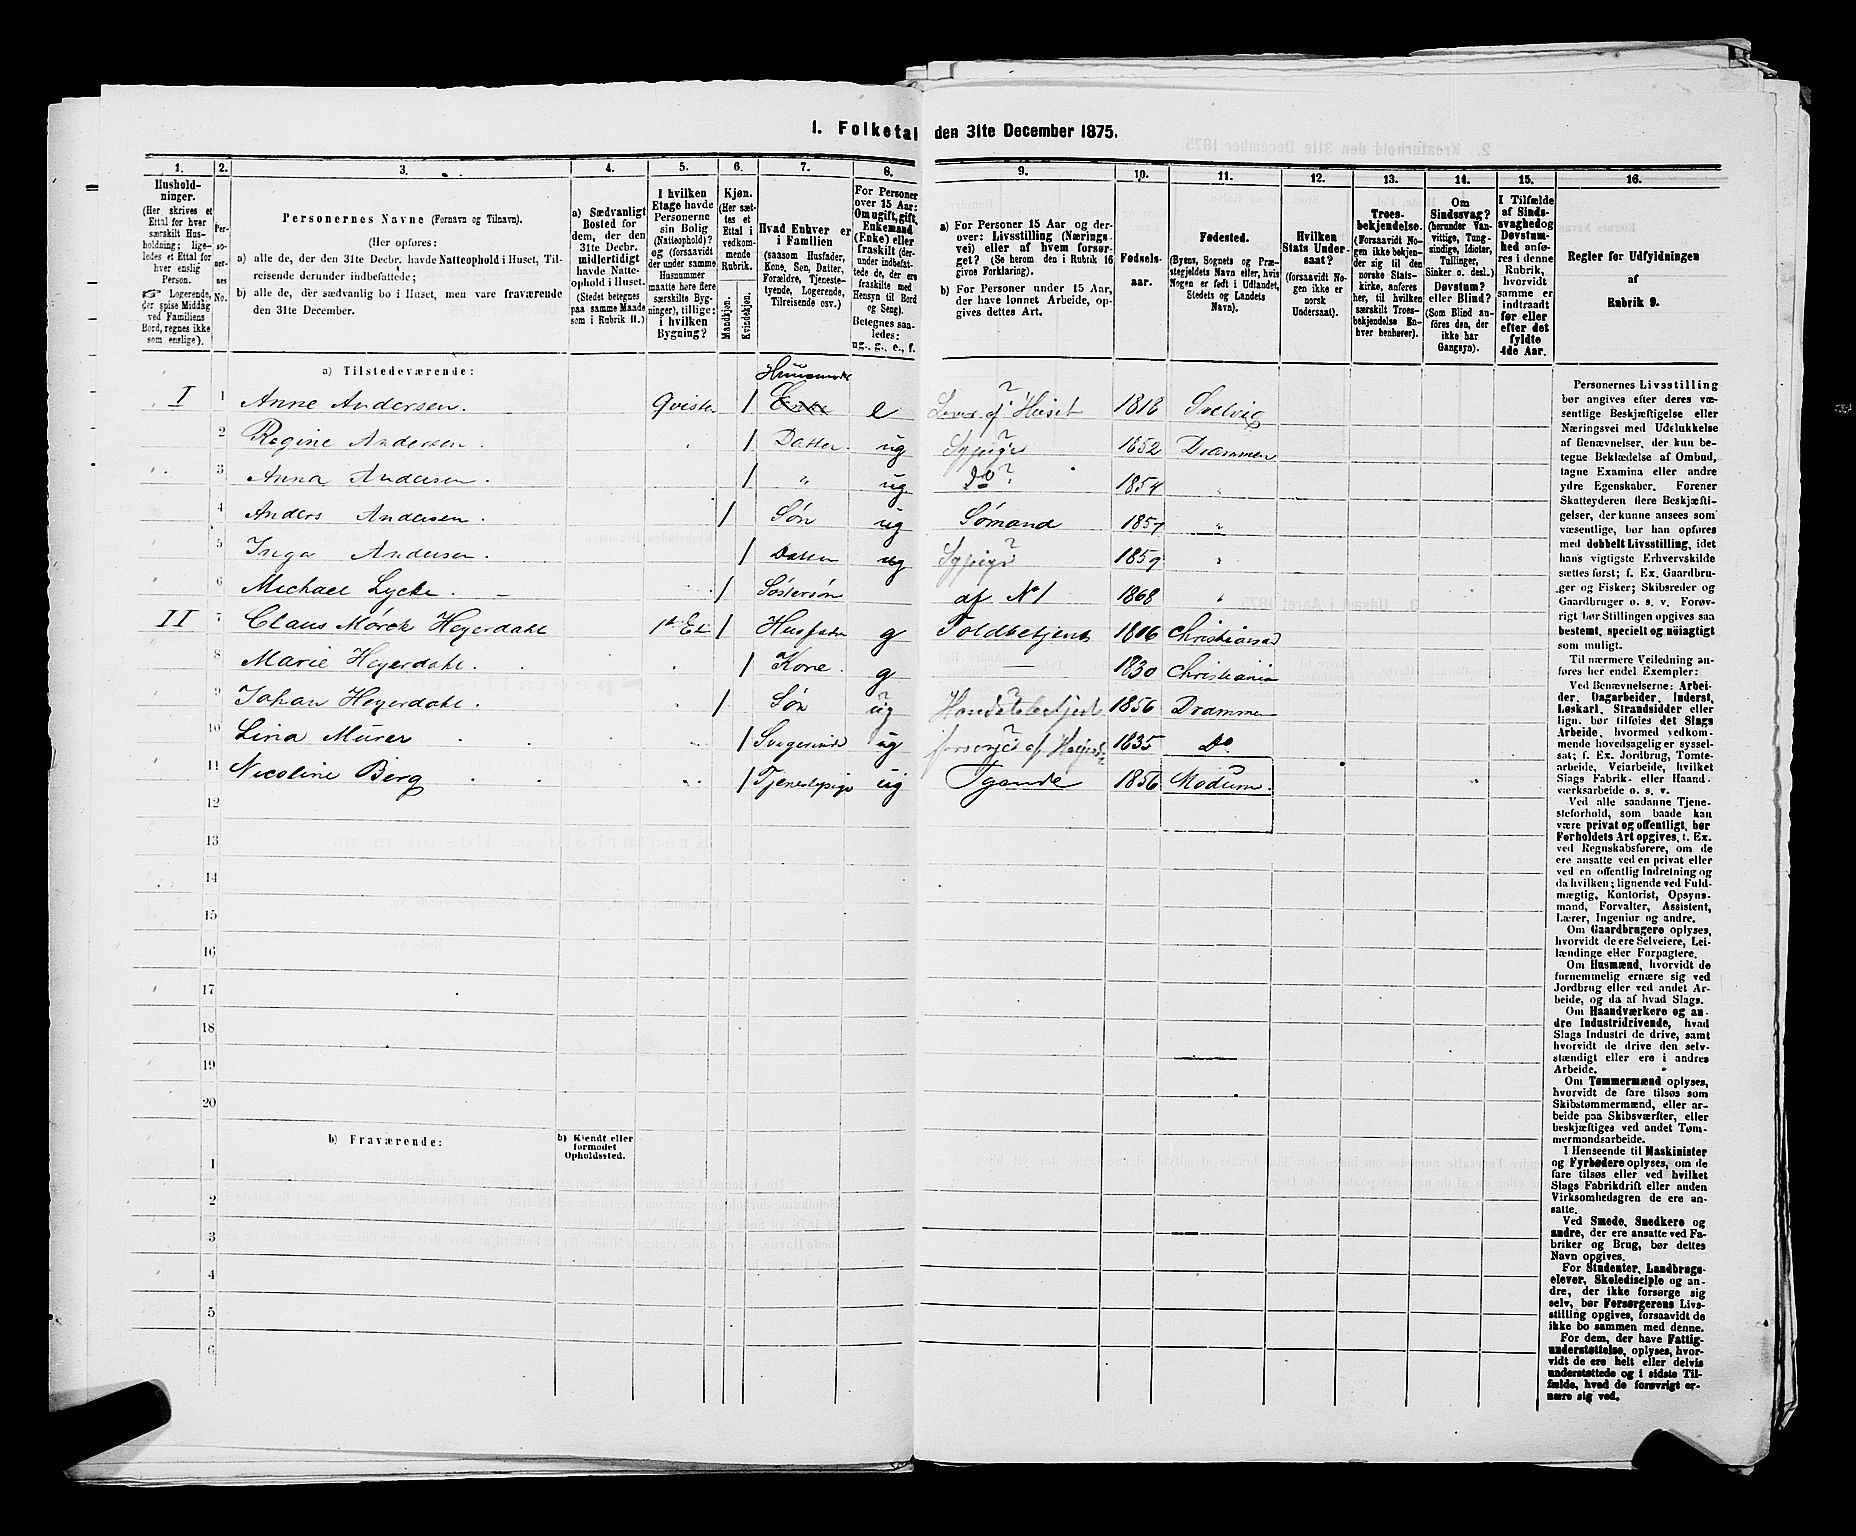 1. Folketal den 31te December 1875.
1. 2. 3. 4. 5. 6. 7. 8. 9. 10. 11. 12. 13. 14. 15. 16.
Hushold-
ninger.
(Her skrives et
Ettal for hver
særskilt Hus-
holdning; lige-
ledes et Ettal
for hver
enslig
Person.
Logerende,
der spise Middag
ved Familiens
Bord, regnes ikke
som enslige).
Per-
so-
ner-
nes
No.
Personernes Navne (Fornavn og Tilnavn).
(Her opføres:
a) alle de, der den 31te Decbr. havde Natteophold i Huset, Til-
reisende derunder indbefattede;
b) alle de, der sædvanlig bo i Huset, men vare fraværende
den 31te December.
a) Sædvanligt
Bosted for
dem, der den
31te Decbr.
midlertidigt
havde Natte-
ophold i Huset.
(Stedet betegnes
paa samme Maade
som i Rubrik 11.)
I hvilken
Etage havde
Personerne
sin Bolig
(Natteophold)?
og (forsaavidt
der under samme
Husnummer
maatte høre flere
særskilte Byg-
ninger), tillige:
i hvilken
Bygning?
Kjøn.
(Her sæt-
tes et
Ettal i
vedkom-
mende
Rubrik.
Mandkjøn.
Kvindekjøn.
Hvad Enhver er
i Familien
(saasom Husfader,
Kone, Søn, Datter,
Forældre, Tjeneste-
tyende, Logerende,
Tilreisende osv.)
For Personer
over 15 Aar:
Om ugift, gift,
Enkemand
(Enke) eller
fraskilt (der-
under indbefat-
tede de, der ere
fraskilte med
Hensyn til Bord
og Seng).
Betegnes saa-
ledes:
ug., g., e., f.
a) For Personer 15 Aar og der-
over: Livsstilling (Nærings-
vei) eller af hvem forsør-
get? (Se herom den i Rubrik 16
givne Forklaring).
b) For Personer under 15 Aar,
der have lønnet Arbeide, op-
gives dettes Art.
Fødsels-
aar.
Fødested.
(Byens, Sognets og Præ-
stegjeldets Navn eller, hvis
Nogen er født i Udlandet,
Stedets og Landets
Navn).
Hvilken
Stats Under-
saat?
(forsaavidt No-
gen ikke er
norsk
Undersaat).
Troes-
bekjendelse.
(Forsaavidt No-
gen ikke bekjen-
der sig til den
norske Stats-
kirke, anføres
her, til hvilken
særskilt Troes-
bekjendelse En-
hver henhører).
Om
Sindssvag?
(herunder Van-
vittige, Tung-
sindige, Idioter,
Tullinger,
Sinker o. desl.)
Døvstum?
eller Blind?
(Som Blind an-
føres den, der
ikke har
Gangsyn).
I Tilfælde
af Sinds-
svaghed og
Døvstum-
hed anfø-
res i denne
Rubrik,
hvorvidt
samme er
indtraadt
før eller
efter det
fyldte
4de Aar.
Regler for Udfyldningen
af
Rubrik 9.
a) Tilstedeværende:
Huusmoder
I 1 Anne Andersen. Qvisten 1 Enke e Lever af Huset ? 1818 Svelvig
2 Regine Andersen. 1 Datter. ug Sypige ? 1852 Drammen
3 Anna Andersen. 1 " ug Do ? 1854 "
4 Anders Andersen. 1 Søn ug Sømand 1857 "
5 Inga Andersen. 1 Datter ug Sypige ? 1859 "
6 Michael Lycke. 1 Søstersøn af No 1 1868 "
II 7 Claus Mørch Heyerdahl 1ste Et. 1 Husfader g Toldbetjent 1806 Christianssand
8 Marie Heyerdahl. 1 Kone. g — 1830 Christiania
9 Johan Heyerdahl. 1 Søn ug Handelsbetjent 1856 Drammen
10 Lina Murer 1 Svigerinde ug forsørges af Heyerd. ? 1835 Do
11 Nicoline Berg 1 Tjenestepige ug Tyende 1856 Modum.
12
13
14
15
16
17
18
19
20
b) Fraværende: b) Kjendt eller
formodet
Opholdssted.
1
2
3
4
5
6
Personernes Livsstilling
bør angives efter deres væ-
sentlige Beskjæftigelse eller
Næringsvei med Udelukkelse
af Benævnelser, der kun be-
tegne Beklædelse af Ombud,
tagne Examina eller andre
ydre Egenskaber. Forener
Skatteyderen flere Beskjæfti-
gelser, der kunne ansees som
væsentlige, bør han opføres
med dobbelt Livsstilling, idet
hans vigtigste Erhvervskilde
sættes først; f. Ex. Gaardbru-
ger og Fisker; Skibsreder og
Gaardbruger o. s. v. Forøv-
rigt bør Stillingen opgives saa
bestemt, specielt og nøiagtigt
som muligt.
Til nærmere Veiledning an-
føres her endel Exempler:
Ved Benævnelserne: Arbei-
der, Dagarbeider, Inderst,
Løskarl, Strandsidder eller
lign. bør tilføies det Slags
Arbeide, hvormed vedkom-
mende hovedsagelig er syssel-
sat; f. Ex. Jordbrug, Tomte-
arbeide, Veiarbeide, hvilket
Slags Fabrik- eller Haand-
værksarbeide o. s. v.
Ved alle saadanne Tjene-
steforhold, som baade kan
være privat og offentligt, bør
Forholdets Art opgives, t. Ex.
ved Regnskabsførere, om de
ere ansatte ved en privat eller
ved en offentlig Indretning og
da hvilken; lignende ved Fuld-
mægtig, Kontorist, Opsyns-
mand, Forvalter, Assistent,
Lærer, Ingeniør og andre.
Om Gaardbrugere oplyses,
hvorvidt de ere Selveiere, Lei-
lændinge eller Forpagtere.
Om Husmænd, hvorvidt de
fornemmelig ernære sig ved
Jordbrug eller ved andet Ar-
beide, og da af hvad Slags.
Om Haandværkere og an-
dre Industridrivende, hvad
Slags Industri de drive, samt
hvorvidt de drive den selv-
stændigt eller ere i andres
Arbeide.
Om Tømmermænd oplyses,
hvorvidt de fare tilsøs som
Skibstømmermænd, eller ar-
beide paa Skibsværfter, eller
beskjæftiges ved andet Tøm-
mermandsarbeide.
I Henseende til Maskinister
og Fyrbødere oplyses, om de
fare tilsøs eller ved hvilket
Slags Fabrikdrift eller anden
Virksomhedsgren de ere an-
satte.
Ved Smede, Snedkere og
andre, der ere ansatte ved Fa-
briker og Brug, bør dettes
Navn opgives.
For Studenter, Landbrugs-
elever, Skoledisciple og an-
dre, der ikke forsørge sig
selv, bør Forsørgerens Livs-
stilling opgives, forsaavidt de
ikke bo sammen med denne.
For dem, der have Fattig-
understøttelse, oplyses, hvor-
vidt de ere helt eller delvis
understøttede og i sidste Til-
fælde, hvad de forøvrigt er-
nære sig ved.